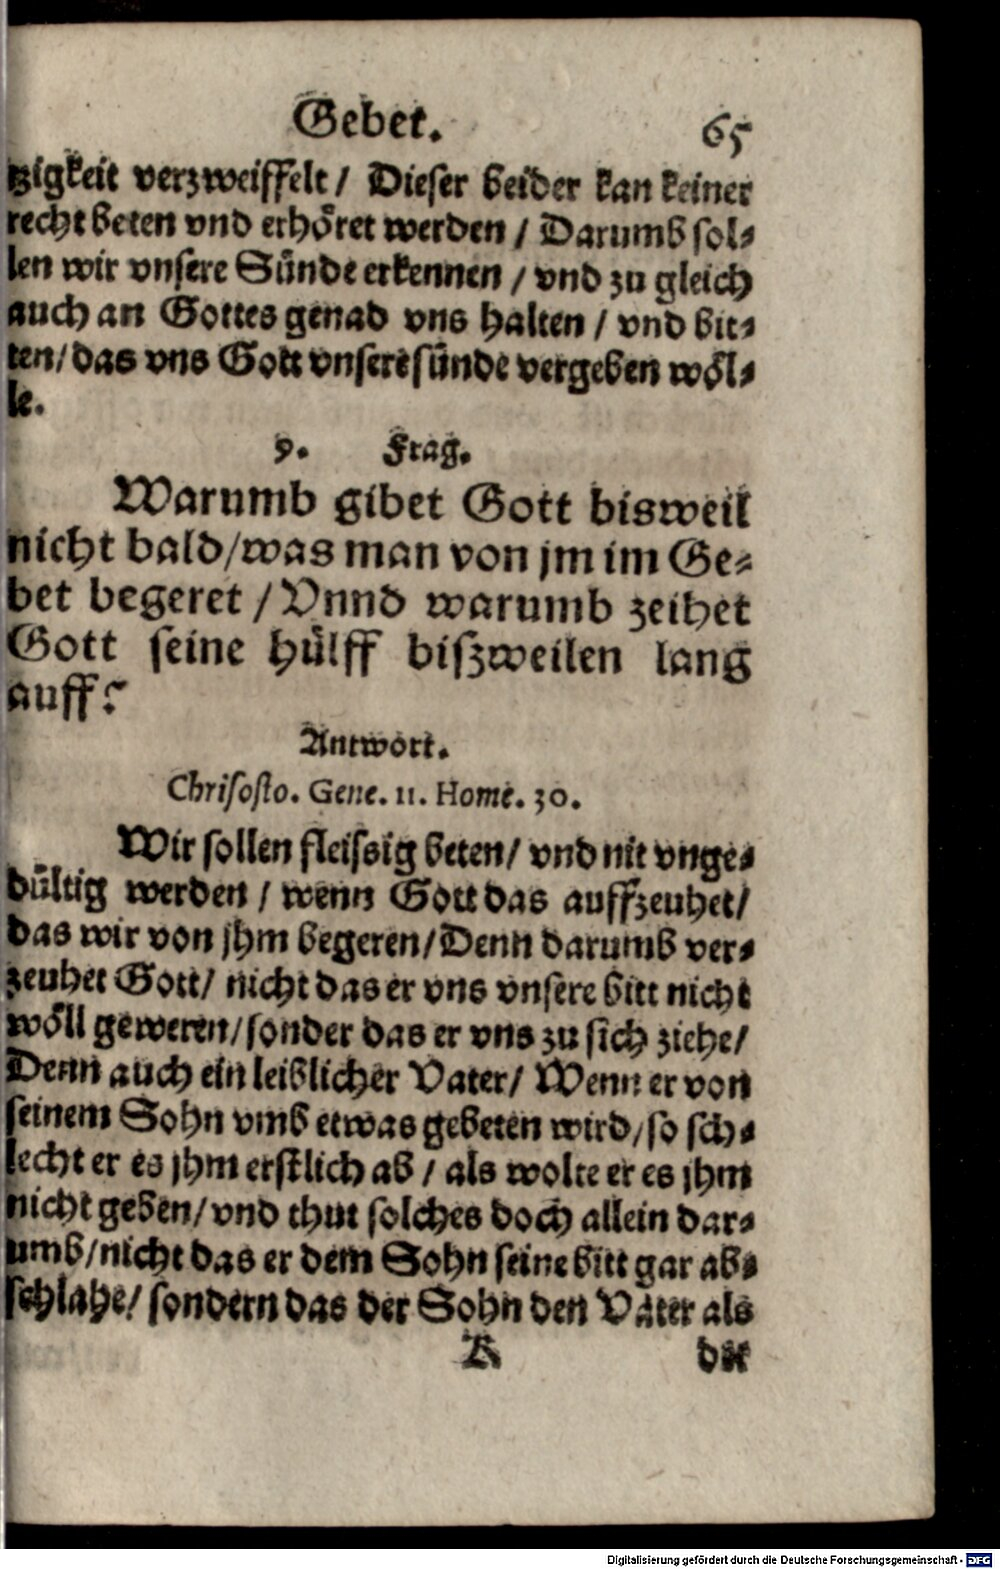 Gebet. 65
tzigkeit verzweiffelt / Dieser beider kan keiner
recht beten vnd erhöret werden / Darumb sol⸗
len wir vnsere Sünde erkennen / vnd zu gleich
auch an Gottes genad vns halten / vnd bit⸗
ten/ das vns Gott vnsere sünde vergeben wöl⸗
le.
9. Frag.
Warumb gibet Gott bisweil
nicht bald/was man von jm im Ge⸗
bet begeret / Vnnd warumb zeihet
Gott seine hülff biszweilen lang
auff?
Antwort.
Chrisosto. Gene. 11. Home. 30.
Wir sollen fleissig beten/ vnd nit vnge⸗
dültig werden / wenn Gott das auffzeuhet/
das wir von jhm begeren/ Denn darumb ver⸗
zeuhet Gott/ nicht das er vns vnsere bitt nicht
wöll geweren/ sonder das er vns zu sich ziehe/
Denn auch ein leiblicher Vater/ Wenn er von
seinem Sohn vmb etwas gebeten wird/ so sch⸗
lecht er es jhm erstlich ab / als wolte er es jhm
nicht geben/ vnd thut solches doch allein dar⸗
umb/ nicht das er dem Sohn seine bitt gar ab⸗
schlahe/ sondern das der Sohn den Vater als
Digitalisierung gefördert durch die Deutsche Forschungsgemeinschaft - DFG